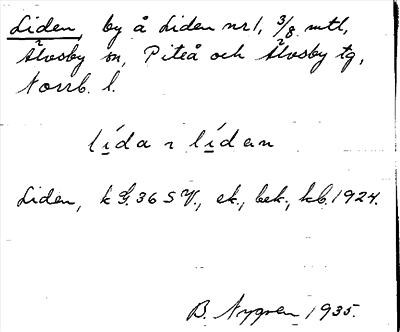 Liden, by å Liden nr 1, 3/8 mtl,
Älvsby sn, Piteå och Älvsby tg,
Norrb. l.
lída ~ lídan
Liden, k G. 36 S V., ek., bek., kb. 1924.
B. Nygren 1935.